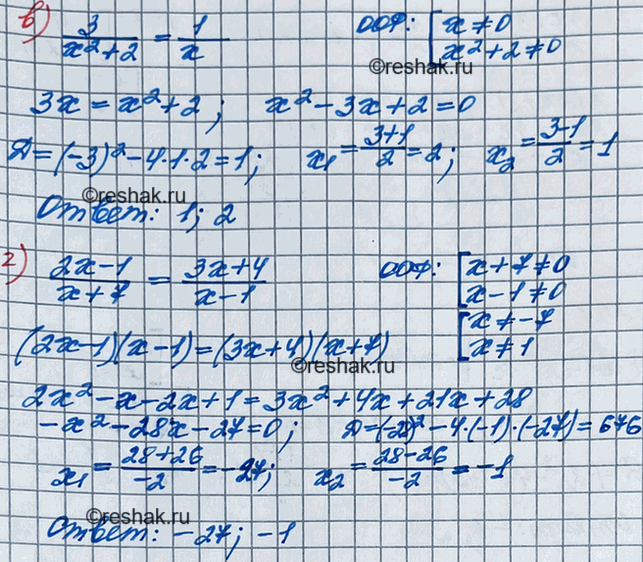 в) 3/(x²+2) = 1/x ООФ: [x≠0
x²+2≠0
©reshak.ru
3x = x²+2; x²-3x+2=0
Д=(-3)²-4·1·2=1; x₁=(3+1)/2=2; x₂=(3-1)/2=1
©reshak.ru
Ответ: 1; 2
г) (2x-1)/(x+7) = (3x+4)/(x-1) ООФ: [x+7≠0
x-1≠0
[x≠-7
x≠1
(2x-1)(x-1)=(3x+4)(x+7)
©reshak.ru
2x²-x-2x+1=3x²+4x+21x+28
-x²-28x-27=0; Д=(-28)²-4·(-1)·(-27)=676
x₁=(28+26)/-2=-27; x₂=(28-26)/-2=-1
©reshak.ru
Ответ: -27; -1